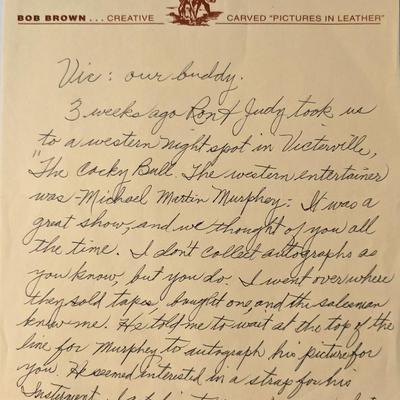 BOB BROWN . . . CREATIVE CARVED "PICTURES IN LEATHER"
Vic: our buddy.
3 weeks ago Ron & Judy took us
to a western night spot in Victorville,
"The Cocky Bull. The western entertainer
was - Michael Martin Murphey: It was a
great show, and we thought of you all
the time. I don't collect autographs as
you know, but you do. I went over where
they sold tapes, bought one, and the salesman
knew me. He told me to wait at the top of the
line for Murphey to autograph his picture for
you. He seemed interested in a strap for his